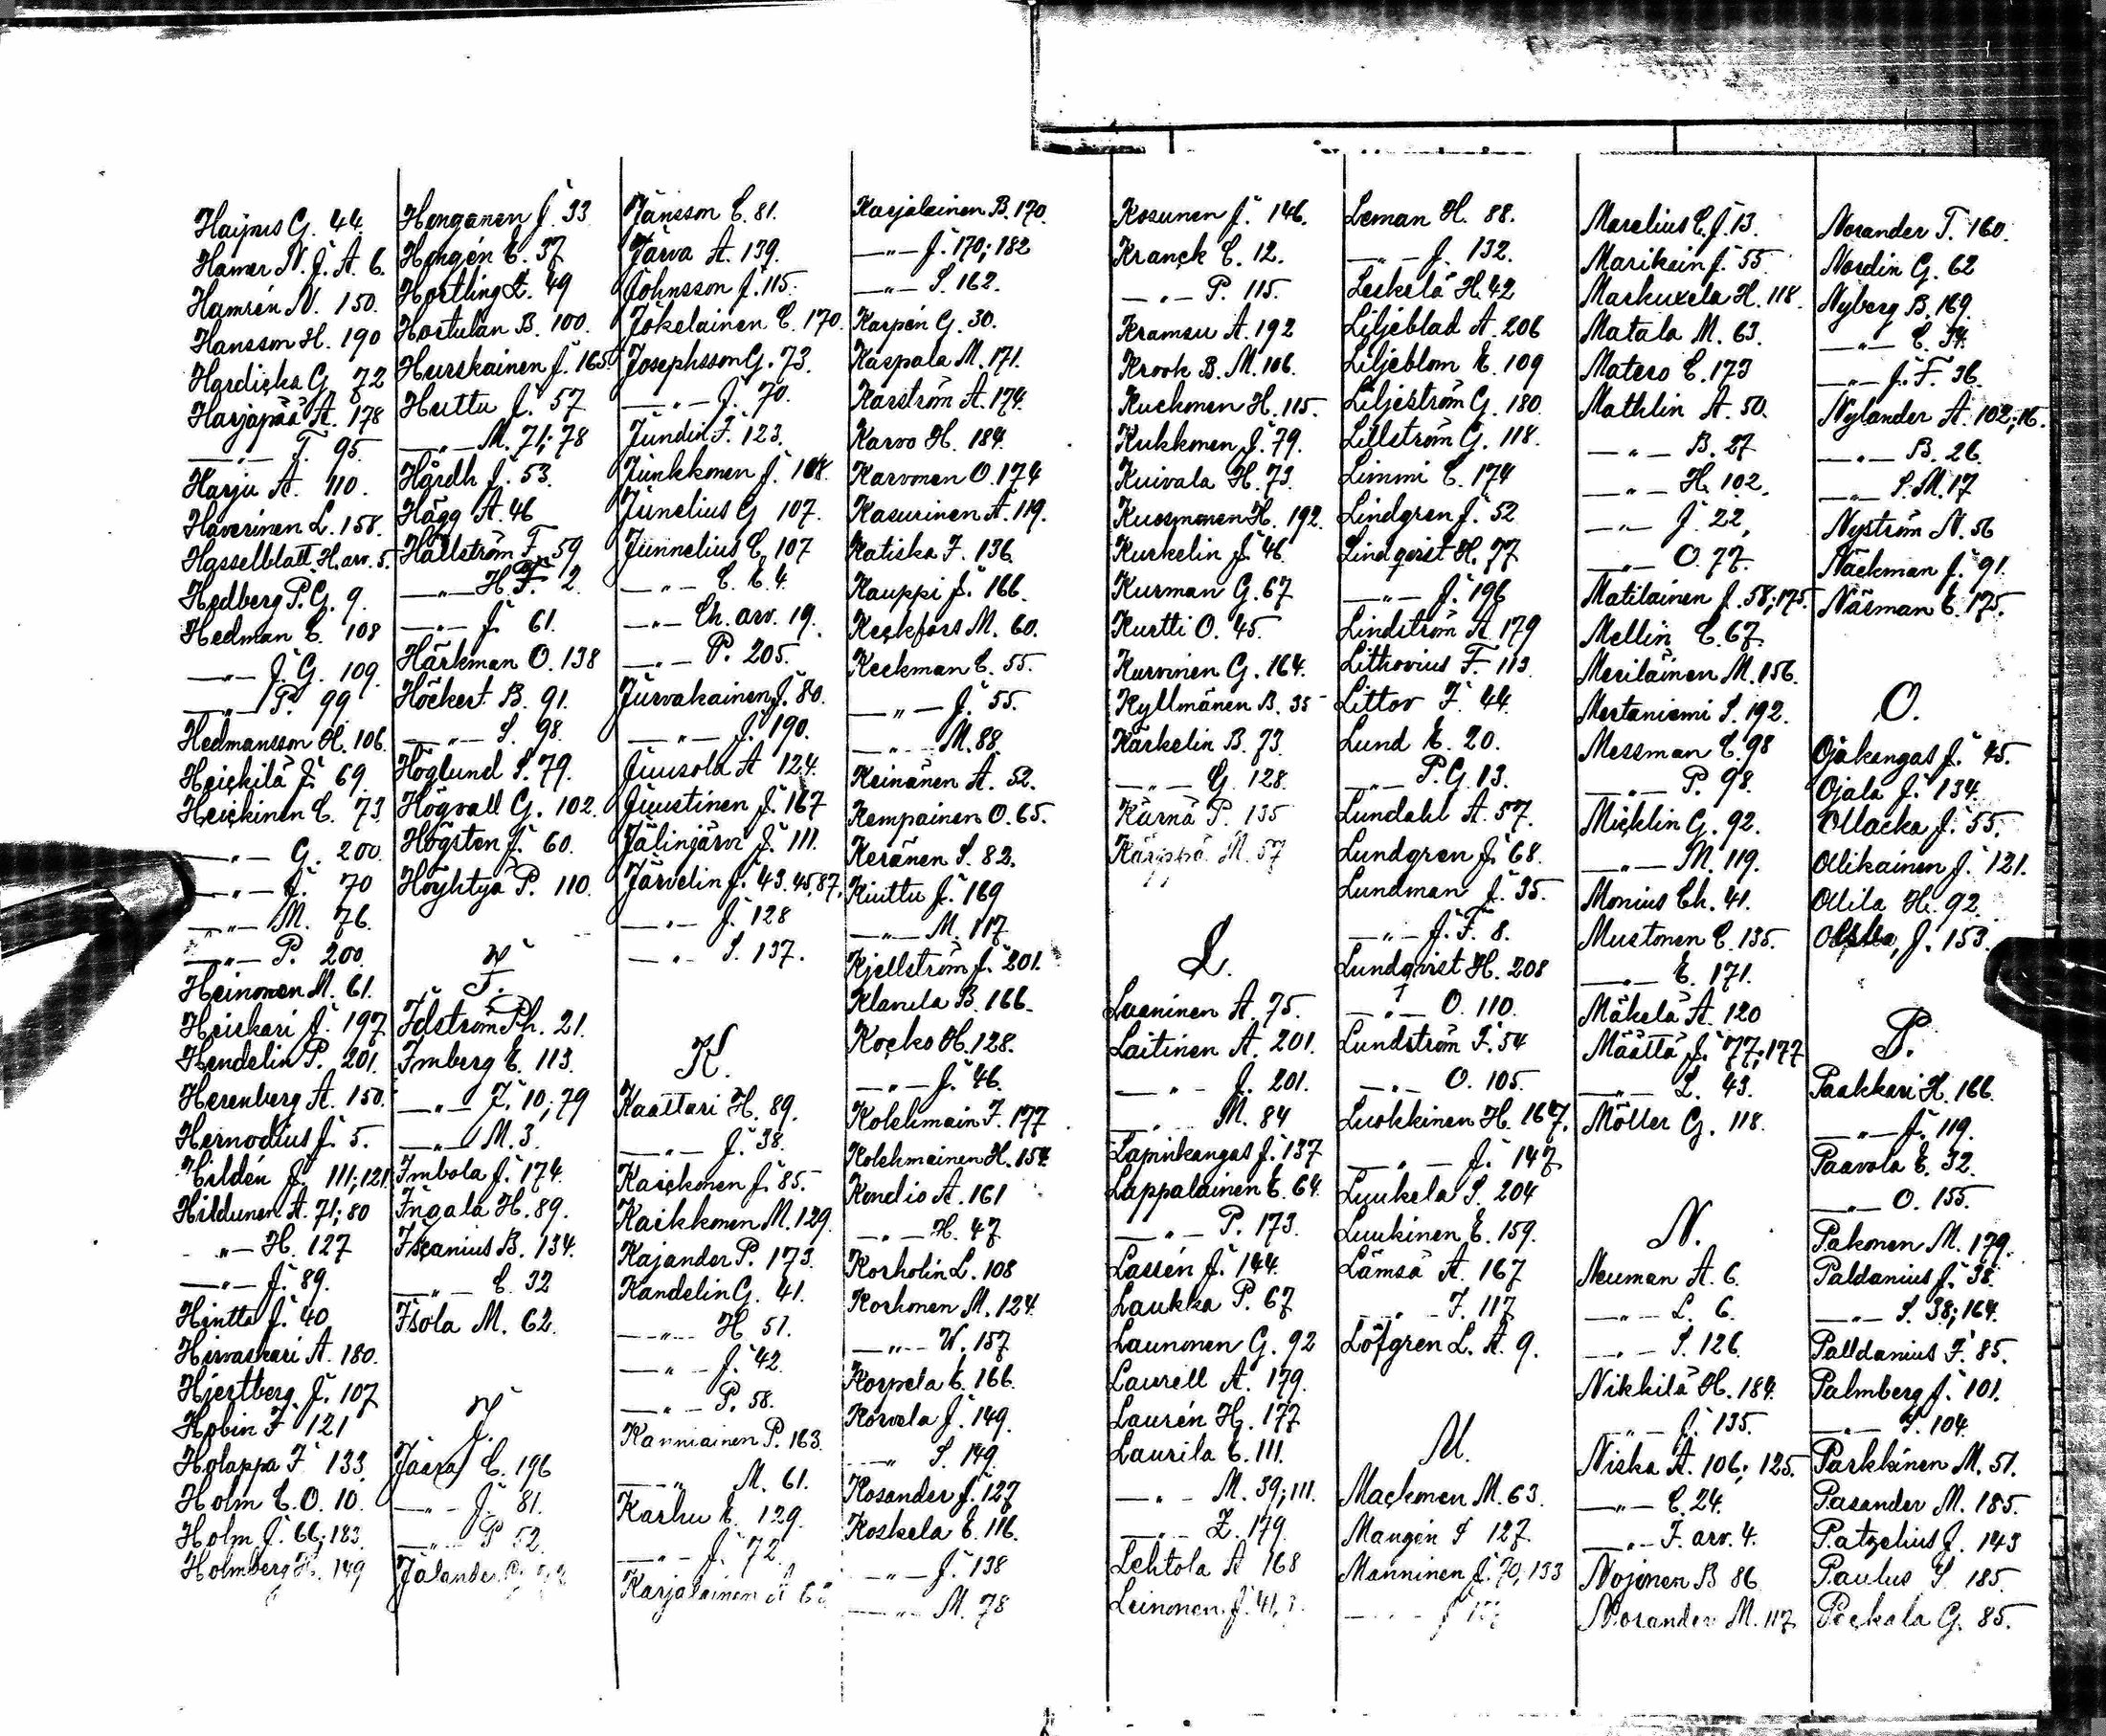 Hajnus G. 44.
Hamer N. J. A. 6.
Hamrén N. 150.
Hansson H. 190
Hardicka G. 72
Harjapää A. 178
—„— F. 95.
Harju A. 110.
Haverinen L. 158.
Hasselblatt H. arv. 5.
Hedberg P. G. 9.
Hedman C. 108
—„— J. G. 109.
—„— P. 99
Hedmansson H. 106.
Heickilä J. 69.
Heickinen C. 73.
—„— G. 200.
—„— J. 70
—„— M. 76.
—„— P. 200.
Heinonen M. 61.
Heiskari J. 197
Hendelin P. 201.
Herenberg A. 150.
Hernodius J. 5.
Hildén J. 111; 121.
Hildunen A. 71; 80
—„— H. 127
—„— J. 89.
Hintta J. 40
Hirvaskari A. 180.
Hjertberg J. 107
Hobin F 121
Holappa F 133.
Holm C. O. 10.
Holm J. 66; 183.
Holmberg H. 149
Honganen J. 33.
Hongén C. 37
Hortling L. 49
Hortulan B. 100.
Hurskainen J. 165.
Huttu J. 57
—„— M. 71; 78
Hårdh J. 53.
Hägg A. 46
Hällström F. 59
—„— H. F. 2.
—„— J. 61.
Härkman O. 138
Höckert B. 91.
—„— S. 98.
Höglund S. 79.
Högvall G. 102.
Högsten J. 60.
Höyhtyä P. 110.
I.
Idström Ph. 21.
Imberg E. 113.
—„— J. 10; 79
—„— M. 3.
Imbola J. 174.
Ingala H. 89.
Iscanius B. 134.
—„— C. 32
Isola M. 62.
J.
Jaara C. 196
—„— J. 81.
—„— P 52.
Jålander
Jansson C. 81.
Järva A. 139.
Johnsson J. 115.
Jokelainen C. 170.
Josephsson G. 73.
—„— J. 70.
Jundin F. 123.
Junkkonen J. 108.
Junelius G 107.
Junnelius C. 107
—„— C. E. 4.
—„— Ch. arv. 19.
—„— P. 205.
Jurvakainen J. 80.
—„— J. 190.
Juusola A 124.
Juustinen J. 167
Jälinjärvi J. 111.
Järvelin J. 43, 45, 87,
—„— J. 128
—„— S. 137.
K.
Kaattari H. 89.
—„— J. 38.
Kaickonen J. 85.
Kaikkonen M. 129.
Kajander P. 173.
Kandelin G. 41.
—„— H 51.
—„— J. 42.
—„— P. 58.
Kanniainen P. 163.
—„— M. 61.
Karhu E. 129.
—„— J. 72.
Karjalainen A
Karjalainen B. 170.
—„— J. 170; 182
—„— S. 162.
Karpén G. 30.
Karpala M. 171.
Karström A. 174.
Karvo H. 184.
Karvonen O. 174
Kasurinen A. 119.
Katiska F. 136.
Kauppi J. 166.
Keckfors M. 60.
Keckman C. 55.
—„— J. 55.
—„— M. 88.
Keinänen A. 52.
Kempainen O. 65.
Keränen S. 82.
Kiuttu J. 169
—„— M. 117.
Kjellström J. 201.
Klanila B. 166.
Kocko H. 128.
—„— J. 46.
Kolehmain F. 177
Kolehmainen H. 154.
Kondio A. 161
—„— H. 47
Korholin L. 108
Korhonen M. 124.
—„— W. 157
Korpela E. 166.
Korvela J. 149.
—„— S. 149.
Kosander J. 127
Koskela E. 116.
—„— J. 138
—„— M. 78
Kosunen J. 146.
Kranck C. 12.
—„— P. 115.
Kramsu A. 192
Krook B. M. 106.
Kuckonen H. 115.
Kukkonen J. 79.
Kuivala H. 73.
Kuosmonen H. 192.
Kurkelin J. 46.
Kurman G. 67
Kurtti O. 45.
Kurvinen G. 164.
Kyllmänen B. 35
Kärkelin B. 73.
—„— G. 128.
Kärnä P. 135
Kärppä M. 57
L.
Laaninen A. 75.
Laitinen A. 201.
—„— J. 201.
—„— M. 84
Lapinkangas J. 137
Lappalainen E. 64.
—„— P. 173.
Lassén J. 144.
Laukka P. 67
Launonen G. 92
Laurell A. 179.
Laurén H. 177
Laurila C. 111.
—„— M. 39; 111.
—„— Z. 179.
Lehtola A 168
Leinonen J. 41,
Leman H. 88.
—„— J. 132.
Leskelä H. 42
Liljeblad A. 206
Liljeblom E. 109
Liljeström G. 180.
Lillström G. 118.
Limmi C. 174
Lindgren J. 52
Lindqvist H. 77
—„— J. 196
Lindström A. 179
Lithovius F. 113.
Littov F. 44.
Lund E. 20.
—„— P. G. 13.
Lundahl A. 57.
Lundgren J. 68.
Lundman J. 35.
—„— J. F. 8.
Lundqvist H. 208
—„— O. 110.
Lundström F. 54
—„— O. 105.
Luokkinen H. 167.
—„— J. 147
Luukela S. 204
Luukinen E. 159.
Lämsä A. 167
—„— F. 117
Löfgren L. A. 9.
M.
Mackonen M. 63.
Mangén S 127.
Manninen J. 70; 133
—„— J
Marelius C. J. 13.
Marikain J. 55.
Markuxela H. 118.
Matala M. 63.
Matero C. 173
Mathlin A. 50.
—„— B. 27
—„— H. 102.
—„— J. 22,
—„— O. 77.
Matilainen J. 58; 175.
Mellin C. 67.
Meriläinen M. 156.
Mertaniemi S. 192.
Messman C. 98
—„— P. 98.
Micklin G. 92.
—„— M. 119.
Monius Ch. 41.
Mustonen C. 135.
—„— E. 171.
Mäkelä A. 120
Määttä J. 77; 177
—„— L. 43.
Möller G. 118.
N.
Neuman A. 6.
—„— L. 6.
—„— S. 126.
Nikkilä H. 184.
—„— J. 135.
Niska A. 106; 125.
—„— C. 24.
—„— F. arv. 4.
Nojonen B 86.
Norander M. 117
Norander T. 160.
Nordin G. 62
Nyberg B. 169.
—„— C. 34.
—„— J. F. 36.
Nylander A. 102; 16.
—„— B. 26.
—„— S. M. 17
Nyström N. 56
Näckman J. 91.
Näsman E. 175.
O.
Ojakangas J. 45.
Ojala J. 134.
Ollacka J. 55.
Ollikainen J. 121.
Ollila H. 92.
J. 153.
P.
Paakkari H. 166.
—„— J. 119.
Paavola E. 32.
—„— O. 155.
Pakonen M. 179.
Paldanius J. 38.
—„— S 38; 164.
Palldanius F. 85.
Palmberg J. 101.
—„— S. 104.
Parkkinen M. 51.
Pasander M. 185.
Patzelius J. 143
Paulus S 185.
Peckala G. 85.